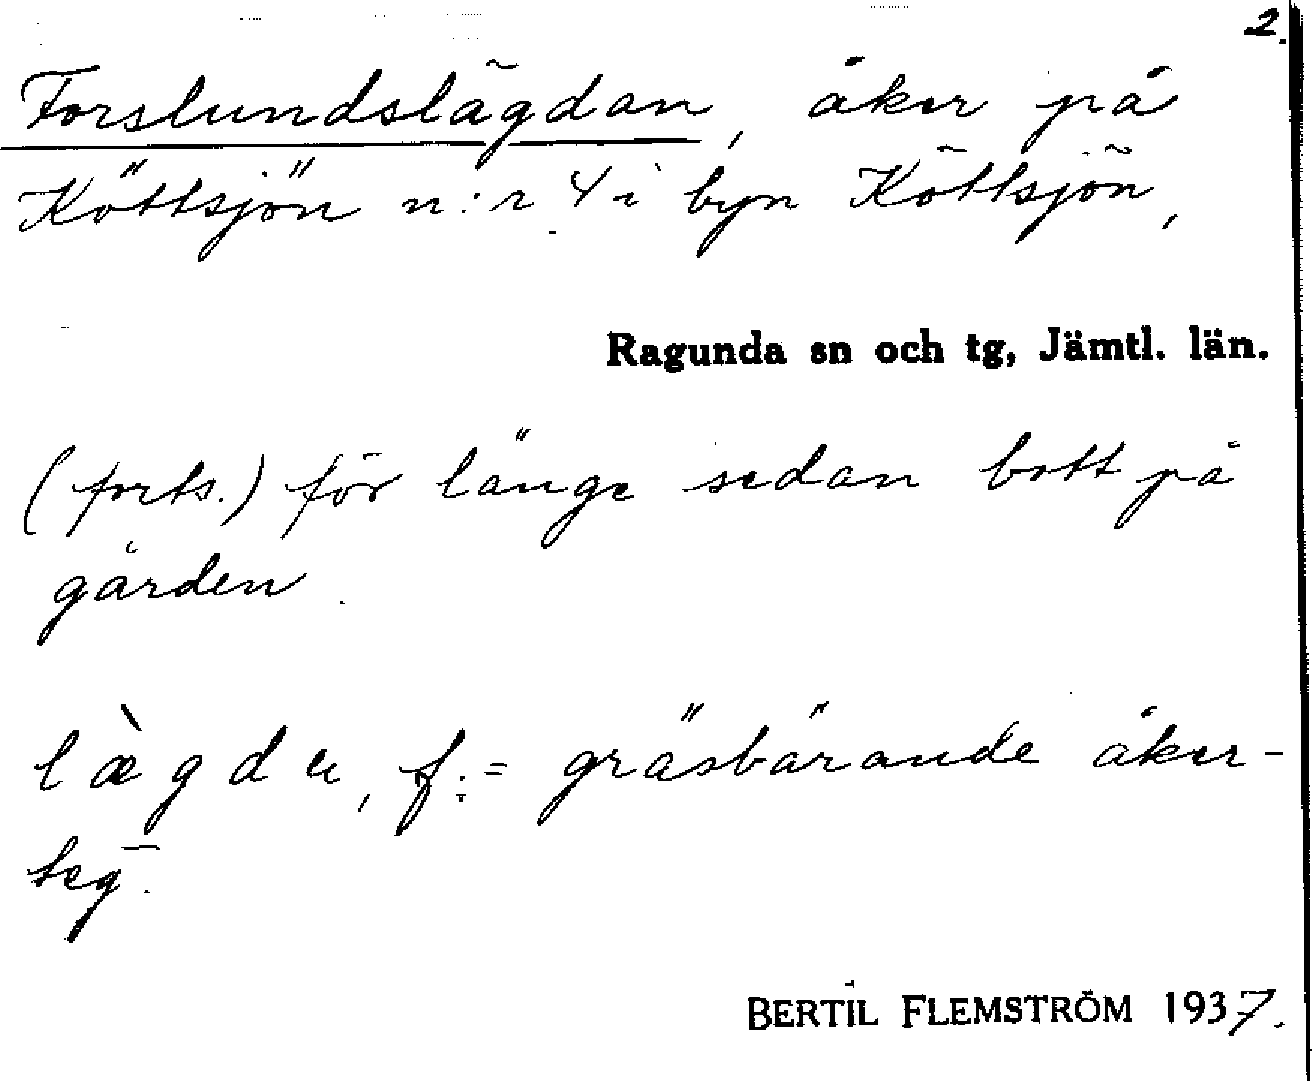 2.
Forslundslägdan, åker på
Köttsjön n:r 4 i byn Köttsjön,
Ragunda sn och tg, Jämtl. län.
(forts.) för länge sedan bott på
gården.
lægdu, f. = gräsbärande åker-
teg.
BERTIL FLEMSTRÖM 1937.